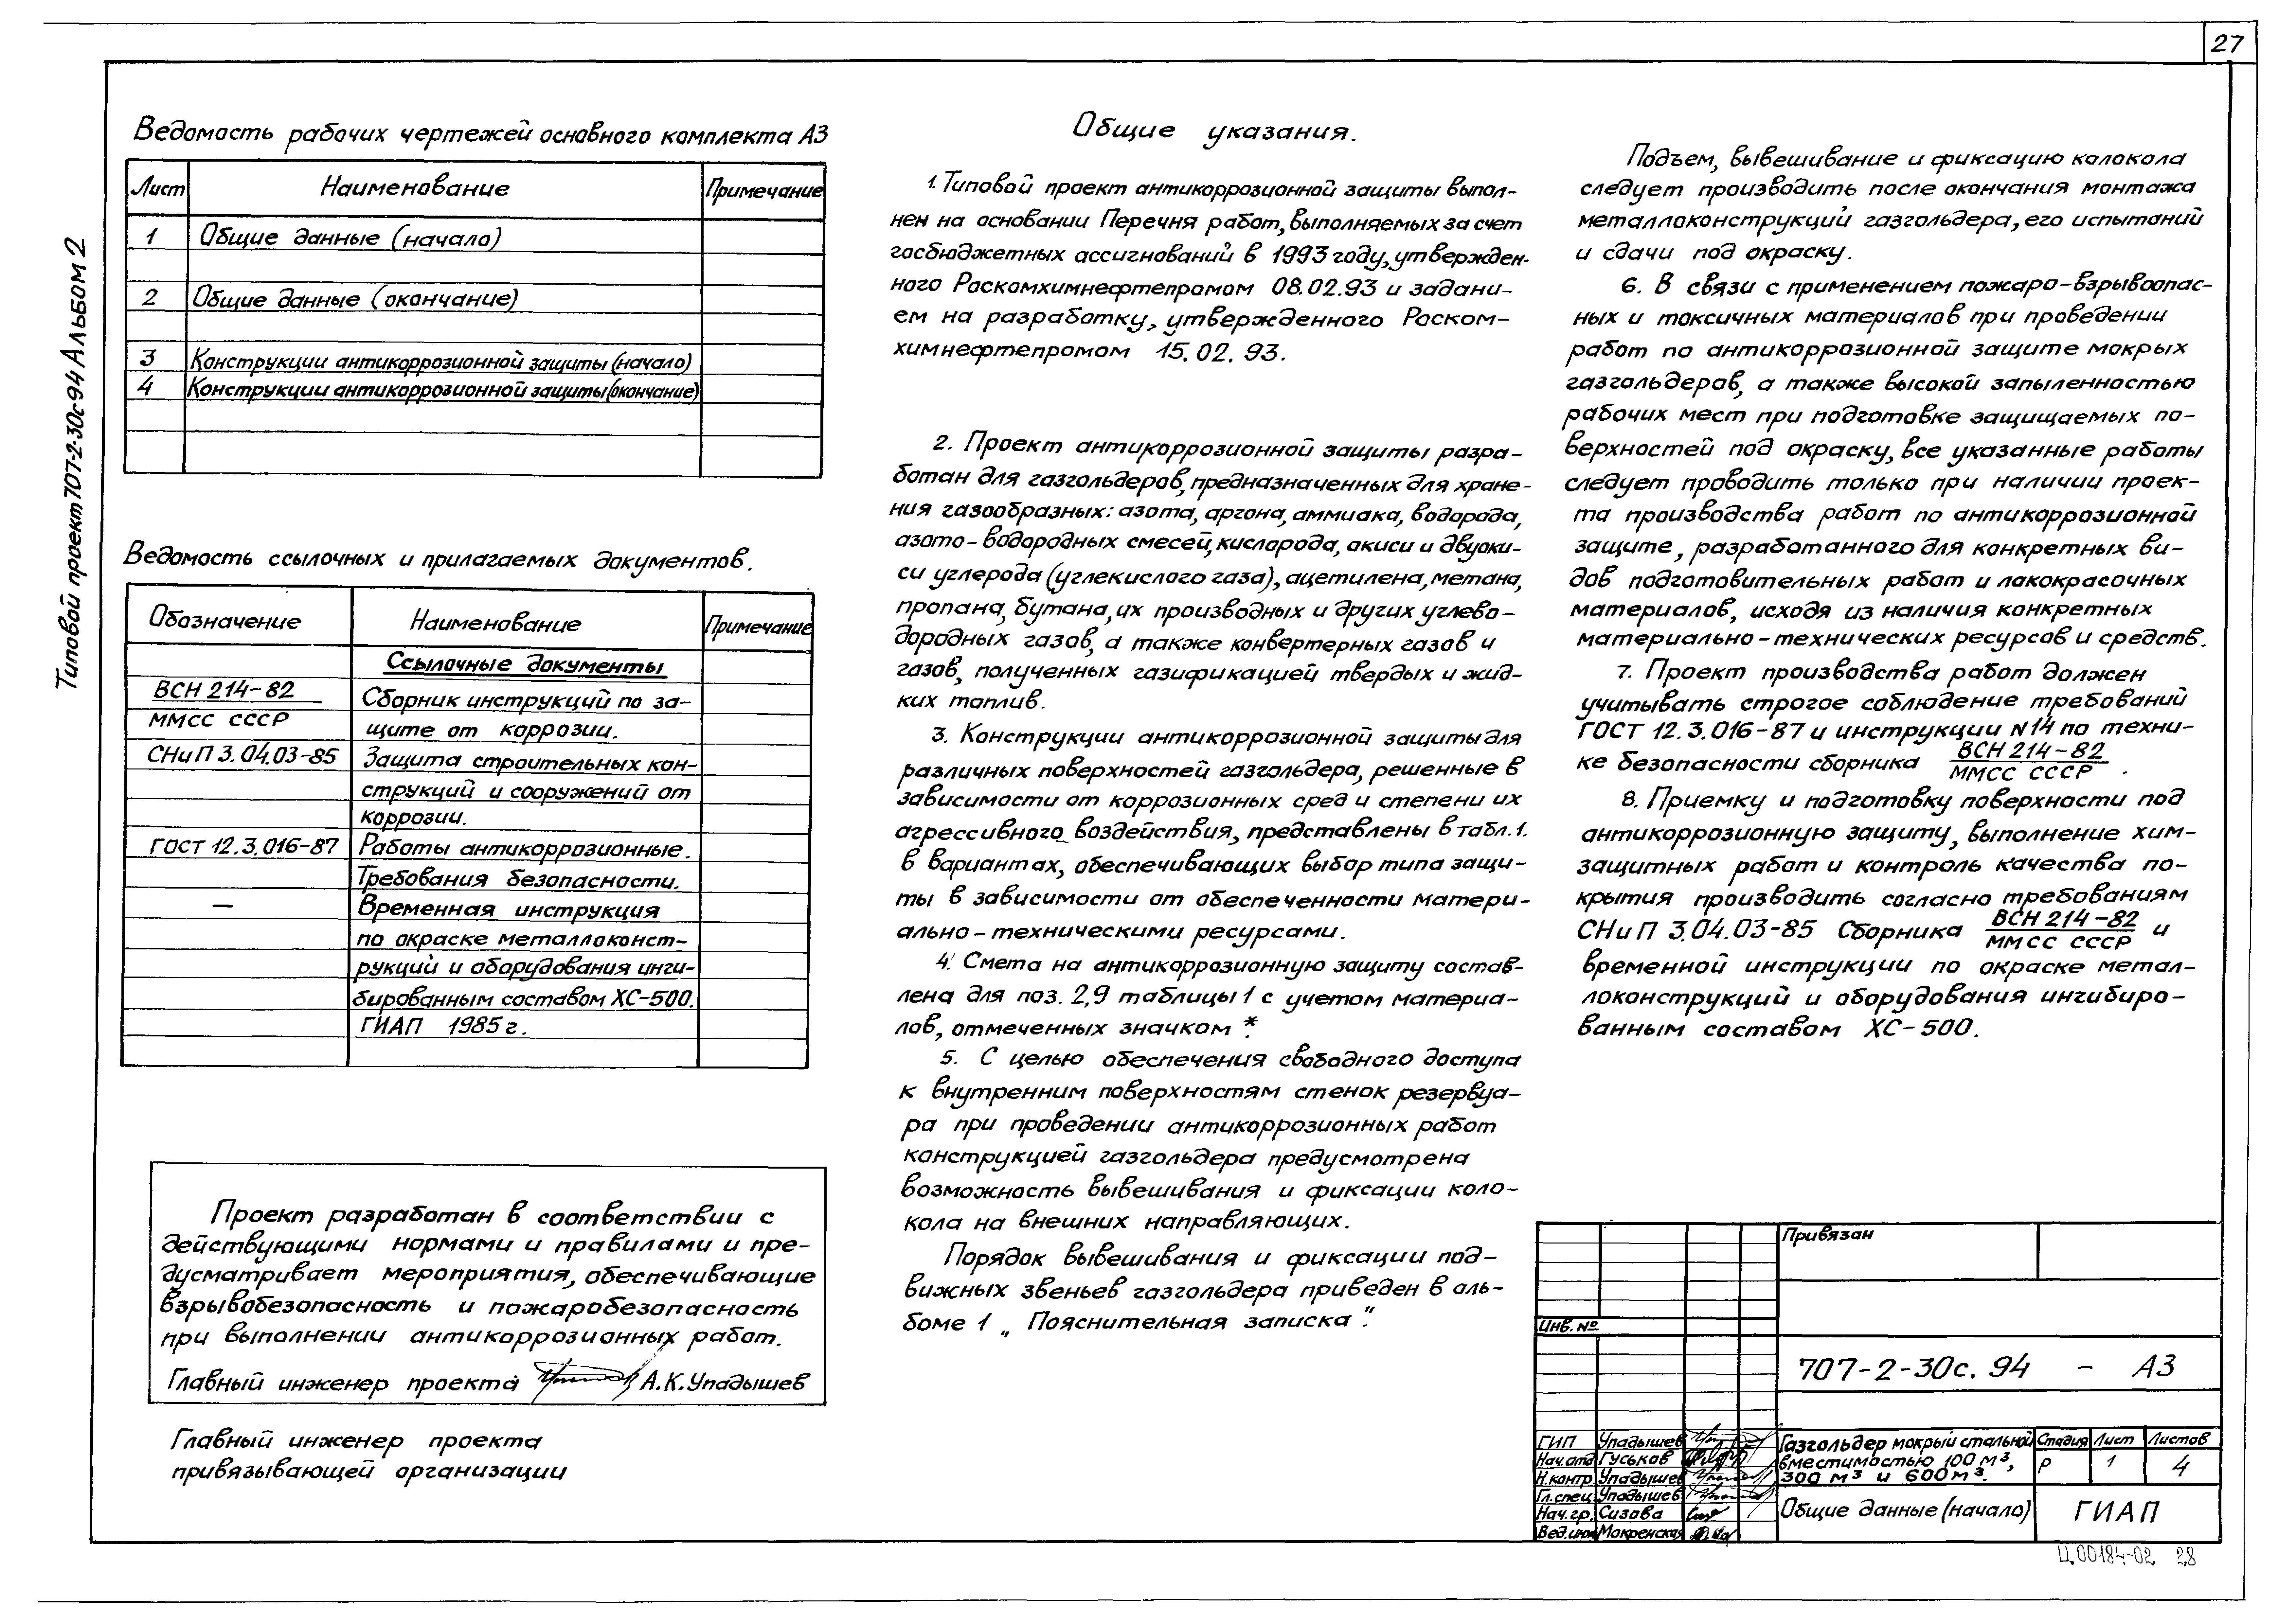 27
Типовой проект 707-2-30с94 Альбом 2
Ведомость рабочих чертежей основного комплекта АЗ
Лист Наименование Примечание
1 Общие данные (начало)
2 Общие данные (окончание)
3 Конструкции антикоррозионной защиты (начало)
4 Конструкции антикоррозионной защиты (окончание)
Ведомость ссылочных и прилагаемых документов.
Обозначение Наименование Примечание
Ссылочные документы
ВСН 214-82 Сборник инструкций по за-
ММСС СССР щите от коррозии.
СНиП 3.04.03-85 Защита строительных кон-
струкций и сооружений от
коррозии.
ГОСТ 12.3.016-87 Работы антикоррозионные.
Требования безопасности.
— Временная инструкция
по окраске металлоконст-
рукций и оборудования инги-
бированным составом ХС-500.
ГИАП 1985г.
Проект разработан в соответствии с
действующими нормами и правилами и пре-
дусматривает мероприятия, обеспечивающие
взрывобезопасность и пожаробезопасность
при выполнении антикоррозионных работ.
Главный инженер проекта А.К.Упадышев
Главный инженер проекта
привязывающей организации
Общие указания.
1. Типовой проект антикоррозионной защиты выпол-
нен на основании Перечня работ, выполняемых за счет
госбюджетных ассигнований в 1993 году, утвержден-
ного Роскомхимнефтепромом 08.02.93 и задани-
ем на разработку, утвержденного Роском-
химнефтепромом 15.02.93.
2. Проект антикоррозионной защиты разра-
ботан для газгольдеров, предназначенных для хране-
ния газообразных: азота, аргона, аммиака, водорода,
азото-водородных смесей, кислорода, окиси и двуоки-
си углерода (углекислого газа), ацетилена, метана,
пропана, бутана, их производных и других углево-
дородных газов, а также конвертерных газов и
газов, полученных газификацией твердых и жид-
ких топлив.
3. Конструкции антикоррозионной защиты для
различных поверхностей газгольдера, решенные в
зависимости от коррозионных сред и степени их
агрессивного воздействия, представлены в табл.1.
в вариантах, обеспечивающих выбор типа защи-
ты в зависимости от обеспеченности матери-
ально-техническими ресурсами.
4. Смета на антикоррозионную защиту состав-
лена для поз. 2,9 таблицы 1 с учетом материа-
лов, отмеченных значком *.
5. С целью обеспечения свободного доступа
к внутренним поверхностям стенок резервуа-
ра при проведении антикоррозионных работ
конструкцией газгольдера предусмотрена
возможность вывешивания и фиксации коло-
кола на внешних направляющих.
Порядок вывешивания и фиксации под-
вижных звеньев газгольдера приведен в аль-
боме 1 „Пояснительная записка".
Подъем, вывешивание и фиксацию колокола
следует производить после окончания монтажа
металлоконструкций газгольдера, его испытаний
и сдачи под окраску.
6. В связи с применением пожаро-взрывоопас-
ных и токсичных материалов при проведении
работ по антикоррозионной защите мокрых
газгольдеров, а также высокой запыленностью
рабочих мест при подготовке защищаемых по-
верхностей под окраску, все указанные работы
следует проводить только при наличии проек-
та производства работ по антикоррозионной
защите, разработанного для конкретных ви-
дов подготовительных работ и лакокрасочных
материалов, исходя из наличия конкретных
материально-технических ресурсов и средств.
7. Проект производства работ должен
учитывать строгое соблюдение требований
ГОСТ 12.3.016-87 и инструкции N14 по техни-
ке безопасности сборника ВСН 214-82
ММСС СССР.
8. Приемку и подготовку поверхности под
антикоррозионную защиту, выполнение хим-
защитных работ и контроль качества по-
крытия производить согласно требованиям
СНиП 3.04.03-85 Сборника ВСН 214-82 и
ММСС СССР
временной инструкции по окраске метал-
локонструкций и оборудования ингибиро-
ванным составом ХС-500.
Привязан
Инв. №
707-2-30с.94 - АЗ
ГИП Упадышев
Нач.отд Гуськов
Н.контр Упадышев
Гл.спец Упадышев
Нач.гр. Сизова
Вед.инж Мокренская
Газгольдер мокрый стальной
вместимостью 100 м³,
300 м³ и 600 м³.
Стадия Лист Листов
Р 1 4
Общие данные (начало)
ГИАП
Ц.00184-02 28